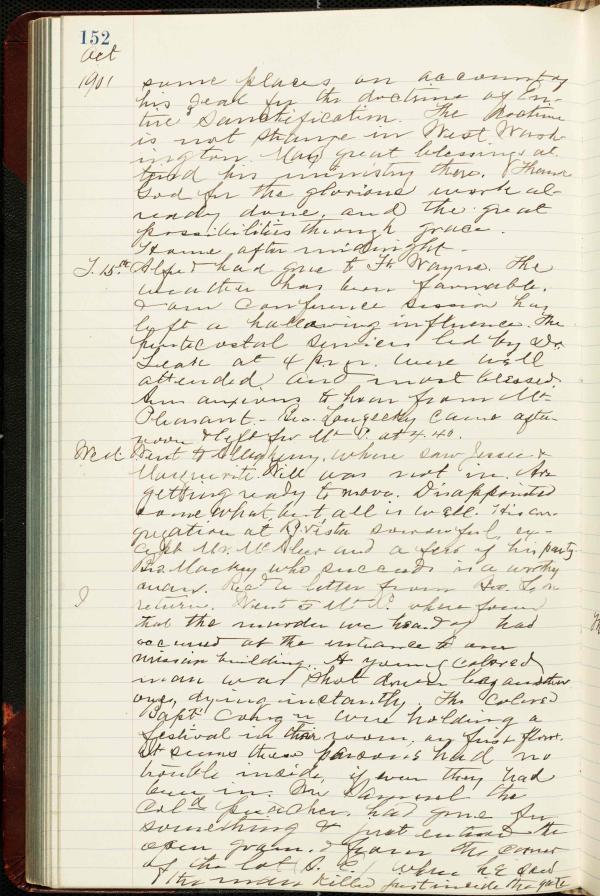 152
Oct
1901
some places on account of
his zeal for the doctrine of En-
tire Sanctification. The doctrine
is not strange in West Wash-
ington. May great blessings at-
tend his ministry there. Thank
God for the glorious work al-
ready done, and the great
possibilities through grace.
Home after midnight.
T. 15th Alfred had gone to Ft. Wayne. The
weather has been favorable.
Our Conference session has
left a hallowing influence. The
pentecostal services led by Dr.
at 4 p.m. were well
attended, and most blessed.
Am anxious to hear from Mt
Pleasant. - Bro. came after
noon & left for Mt. P. at 4.40.
Wed. Went to Allegheny, where saw Jessie &
Marguerite. Will was not in. Are
getting ready to move. Disappointed
somewhat, but all is well. His con-
gregation at vista sorrowful, ex-
cept Mr. and a few of his party.
Bro. Mackey who succeeds is a worthy
man. Recd a letter from on
return. Went to Mt. P. where found
that the murder we heard of had
occurred at the entrance to our
mission building. A young colored
man was shot down by another
one, dying instantly. The Colored
Bapt. Congn were holding a
festival in their room, on first floor.
It seems these persons had no
trouble inside, if even they had
been in. the
Cold preacher had gone for
something & just entered the
open from the corner
of the lot when he saw
the man killed just inside the gate